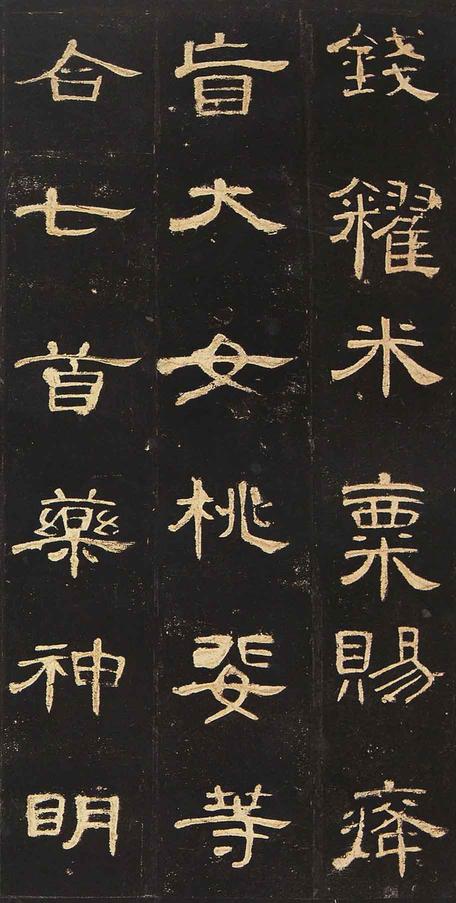 錢糴米粟賜癃
盲大女桃婓等
合七首藥神明